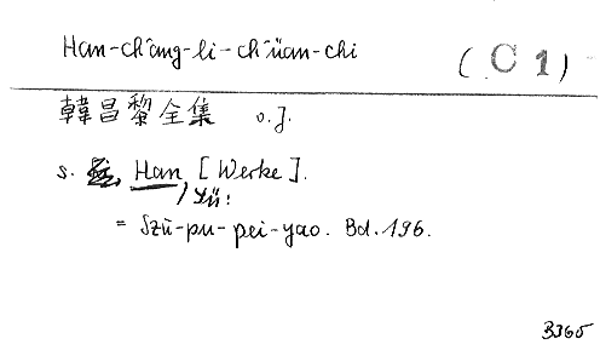 Han-ch'ang-li-ch'üan-chi
(C 1)
韓昌黎全集 o.J.
s. Han, Yü: [Werke].
= Szŭ-pu-pei-yao. Bd. 196.
B365